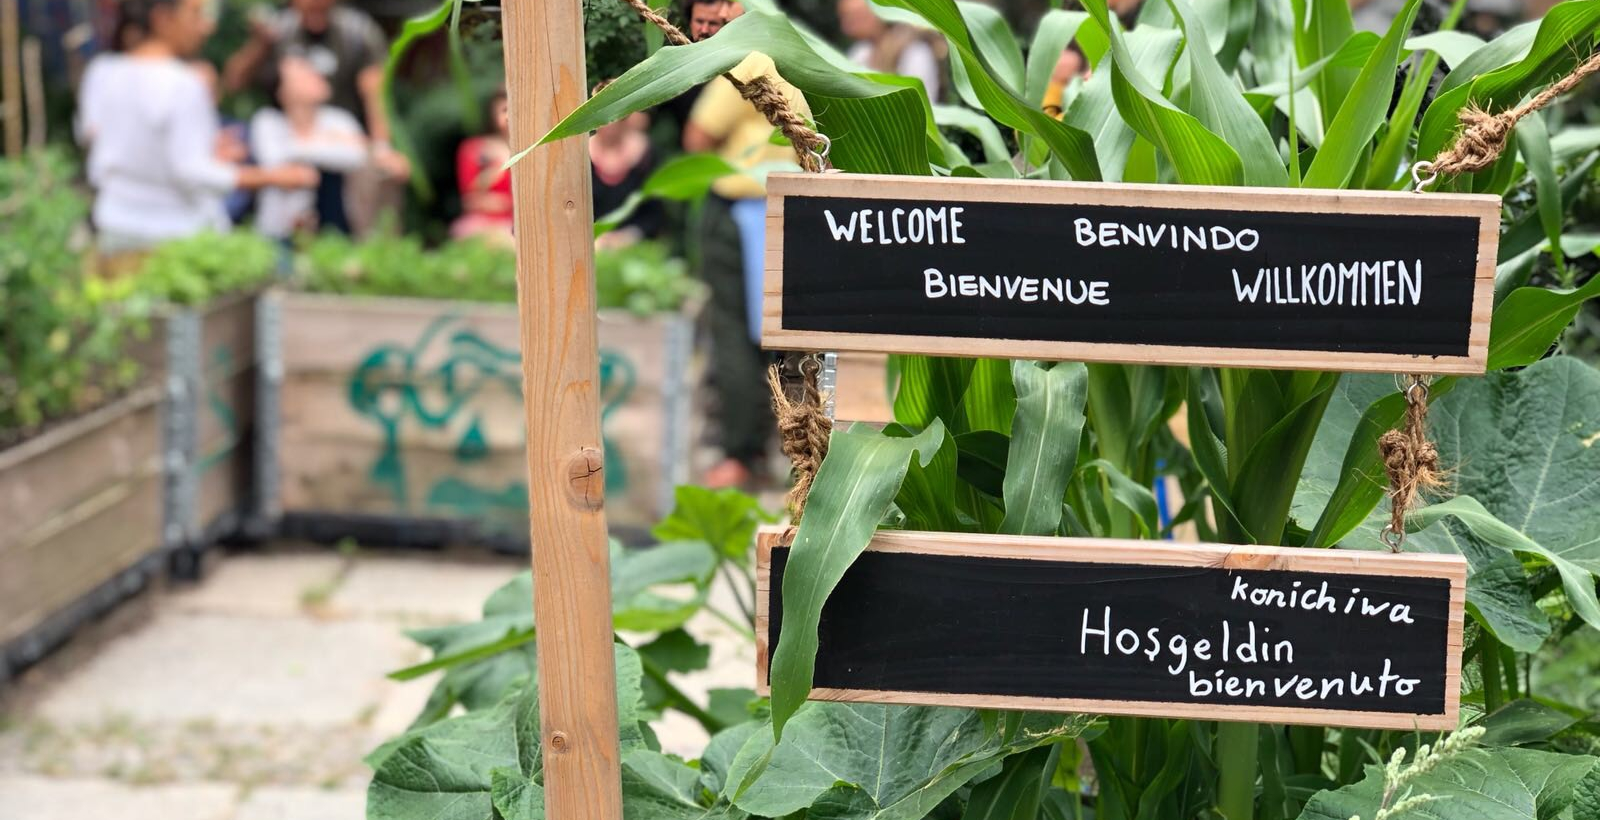 WELCOME BENVINDO
BIENVENUE WILLKOMMEN
konichiwa
Hoşgeldin
bienvenuto